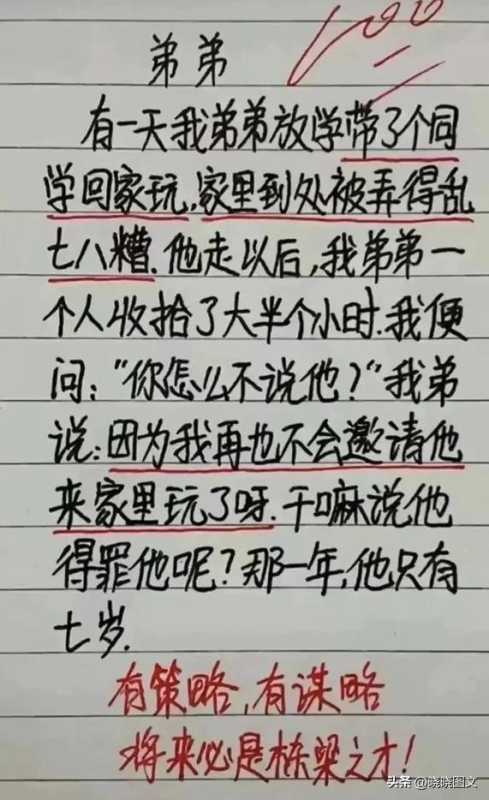 100
弟弟
有一天我弟弟放学带了个同
学回家玩,家里到处被弄得乱
七八糟.他走以后,我弟弟一
个人收拾了大半个小时.我便
问:“你怎么不说他?”我弟
说:因为我再也不会邀请他
来家里玩了呀.干嘛说他
得罪他呢?那一年,他只有
七岁.
有策略,有谋略
将来必是栋梁之才!
头条 @晓晓图文